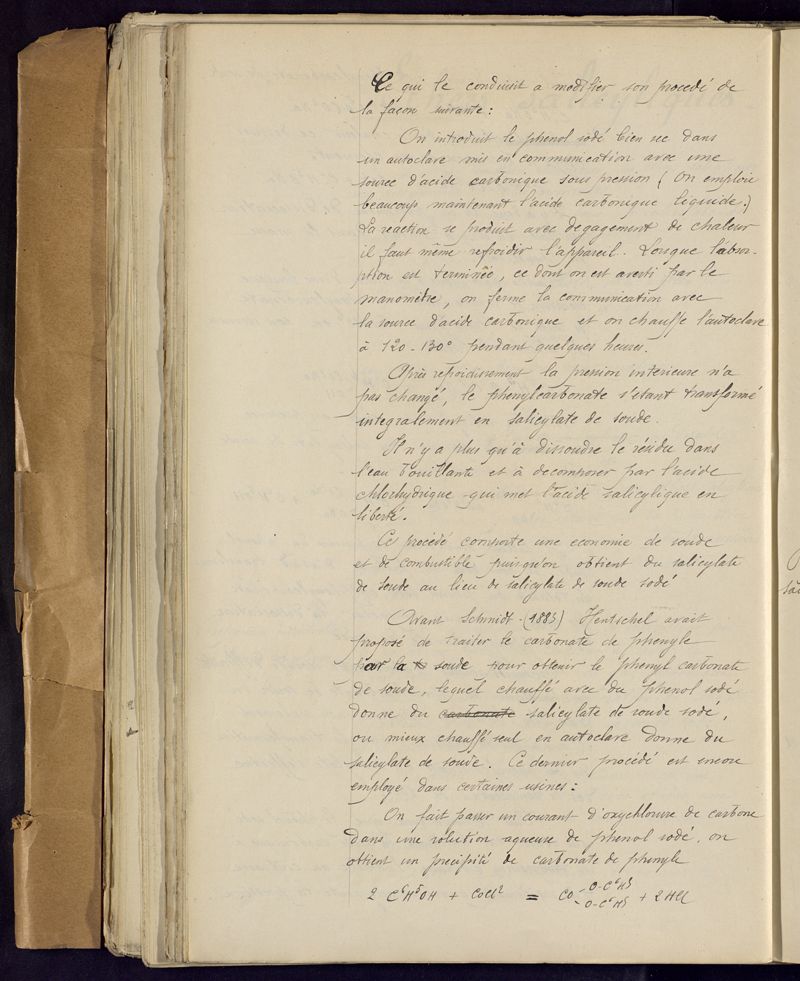 Ce qui le conduisit a modifier son procedé de
la façon suivante :
On introduit le phenol sodé bien sec dans
un autoclave mis en communication avec une
source d'acide carbonique sous pression ( On emploie
beaucoup maintenant l'acide carbonique liquide.)
La reaction se produit avec degagement de chaleur
il faut même refroidir l'appareil. Lorsque l'absor-
ption est terminée, ce dont on est averti par le
manomètre, on ferme la communication avec
la source d'acide carbonique et on chauffe l'autoclave
à 120-130° pendant quelques heures.
Après refroidissement la pression interieure n'a
pas changé, le phenylcarbonate s'étant transformé
integralement en salicylate de soude.
Il n'y a plus qu'à dissoudre le résidu dans
l'eau bouillante et à decomposer par l'acide
chlorhydrique qui met l'acide salicylique en
liberté.
Ce procédé comporte une economie de soude
et de combustible puisqu'on obtient du salicylate
de soude au lieu de salicylate de soude sodé
Avant Schmidt - (1883) Hentschel avait
proposé de traiter le carbonate de phenyle
par la soude pour obtenir le phenyl carbonate
de soude, lequel chauffé avec du phenol sodé
donne du carbonate salicylate de soude sodé,
ou mieux chauffé seul en autoclave donne du
salicylate de soude. Ce dernier procédé est encore
employé dans certaines usines :
On fait passer un courant d'oxychlorure de carbone
dans une solution aqueuse de phenol sodé, on
obtient un precipité de carbonate de phenyle
2 C⁶H⁵OH + COCl² = CO - O-C⁶H⁵ - O-C⁶H⁵ + 2HCl